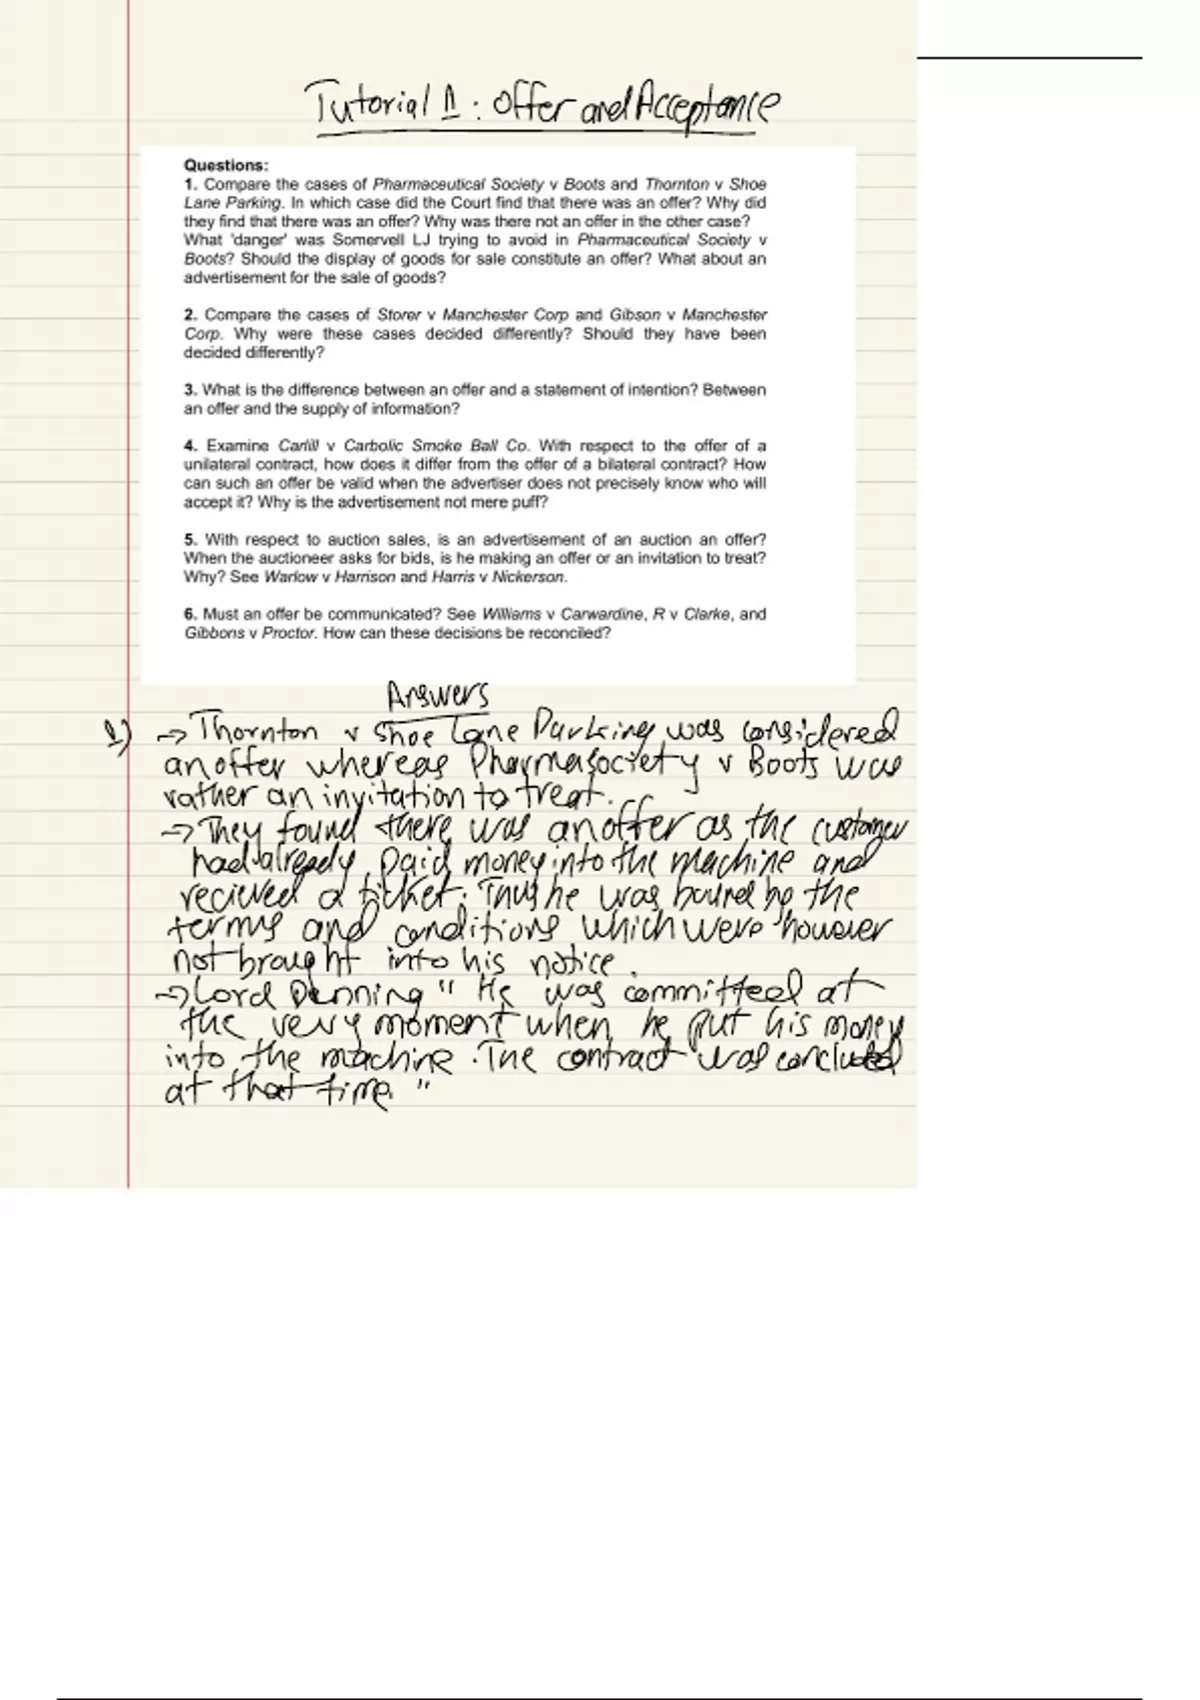 Tutorial 1 : Offer and Acceptance
Questions:
1. Compare the cases of Pharmaceutical Society v Boots and Thornton v Shoe
Lane Parking. In which case did the Court find that there was an offer? Why did
they find that there was an offer? Why was there not an offer in the other case?
What 'danger' was Somervell LJ trying to avoid in Pharmaceutical Society v
Boots? Should the display of goods for sale constitute an offer? What about an
advertisement for the sale of goods?
2. Compare the cases of Storer v Manchester Corp and Gibson v Manchester
Corp. Why were these cases decided differently? Should they have been
decided differently?
3. What is the difference between an offer and a statement of intention? Between
an offer and the supply of information?
4. Examine Carlill v Carbolic Smoke Ball Co. With respect to the offer of a
unilateral contract, how does it differ from the offer of a bilateral contract? How
can such an offer be valid when the advertiser does not precisely know who will
accept it? Why is the advertisement not mere puff?
5. With respect to auction sales, is an advertisement of an auction an offer?
When the auctioneer asks for bids, is he making an offer or an invitation to treat?
Why? See Warlow v Harrison and Harris v Nickerson.
6. Must an offer be communicated? See Williams v Carwardine, R v Clarke, and
Gibbons v Proctor. How can these decisions be reconciled?
Answers
1) → Thornton v Shoe Lane Parking was considered
an offer whereas Pharmasociety v Boots was
rather an invitation to treat.
→ They found there was an offer as the customer
had already paid money into the machine and
recieved a ticket. Thus he was bound by the
terms and conditions which were however
not brought into his notice.
→ Lord Denning " He was committed at
the very moment when he put his money
into the machine. The contract was concluded
at that time. "